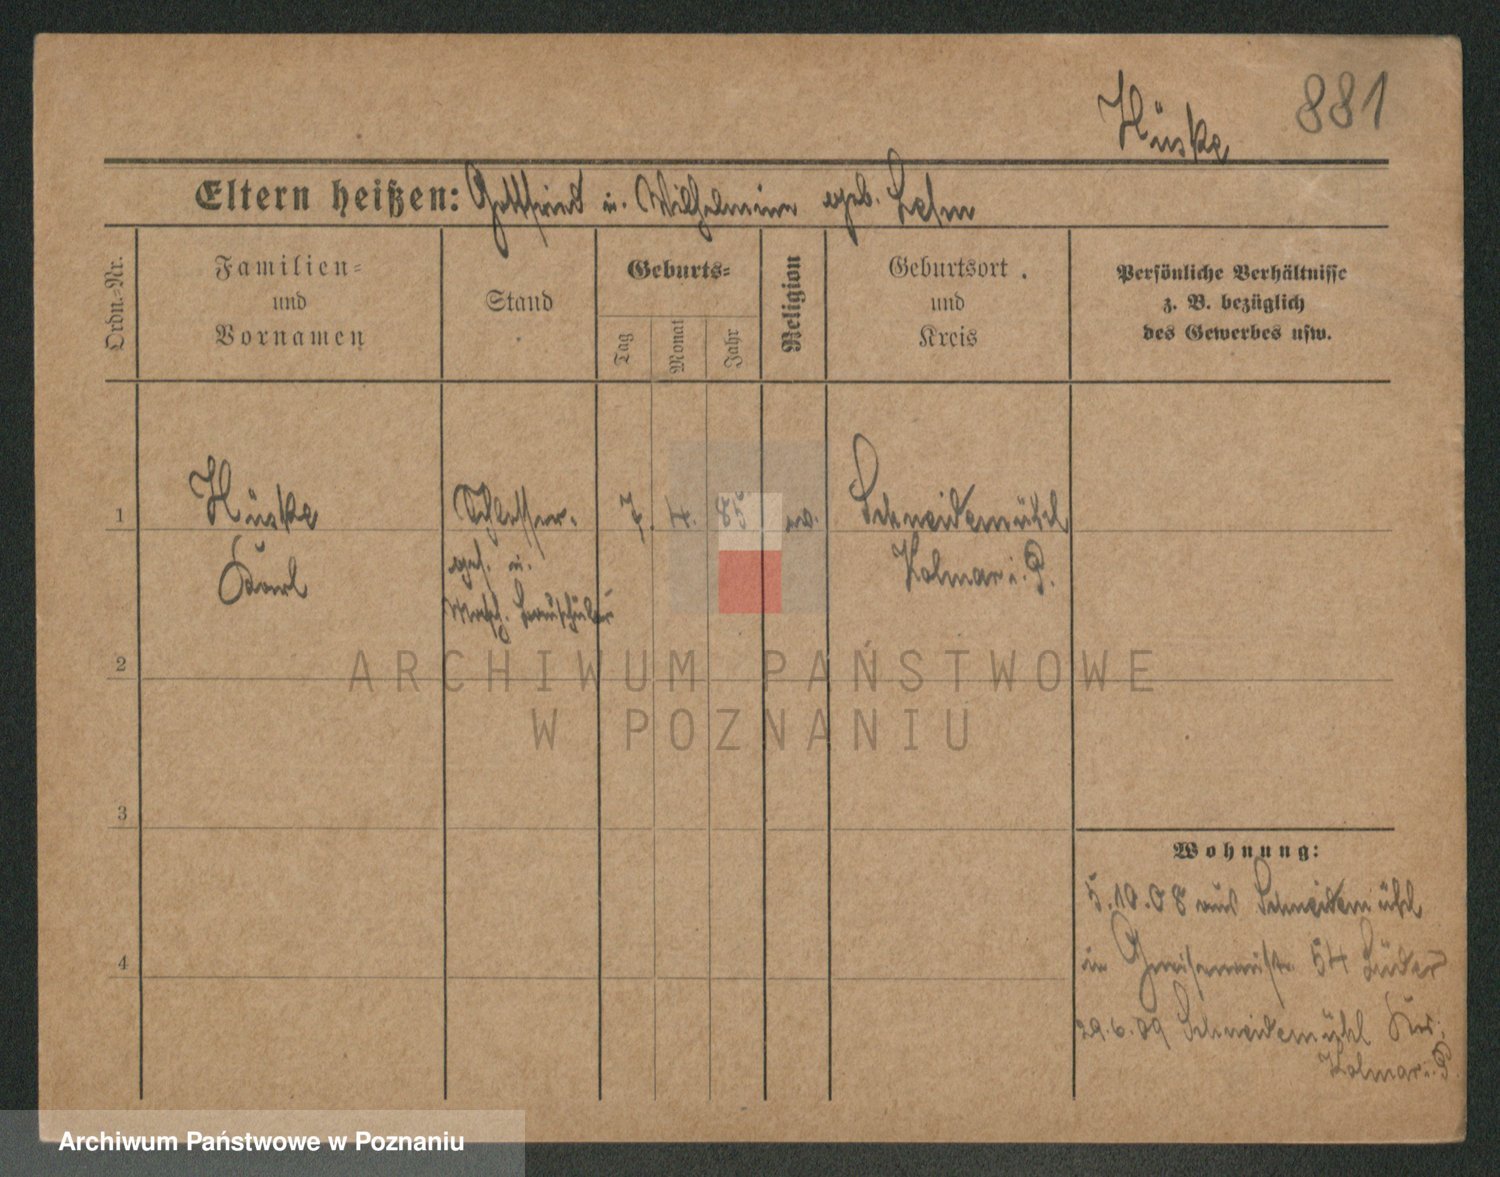 881
Hüske
Eltern heißen: Gottfried u. Wilhelmine geb.
Ordn.-Nr.
Familien-
und
Vornamen
Stand
Geburts-
Tag
Monat
Jahr
Religion
Geburtsort
und
Kreis
Persönliche Verhältnisse
z. B. bezüglich
des Gewerbes usw.
1
Hüske
Karl
Schlosser-
ges. u.
Masch. Bauschüler
7. 4. 85
ev.
Schneidemühl
Kolmar i. P.
2
3
4
Wohnung:
5.10.08 aus Schneidemühl
in Gneisenaustr. 54 Lüder
29.6.09 Schneidemühl Krs.
Kolmar i. P.
ARCHIWUM PAŃSTWOWE
W POZNANIU
Archiwum Państwowe w Poznaniu